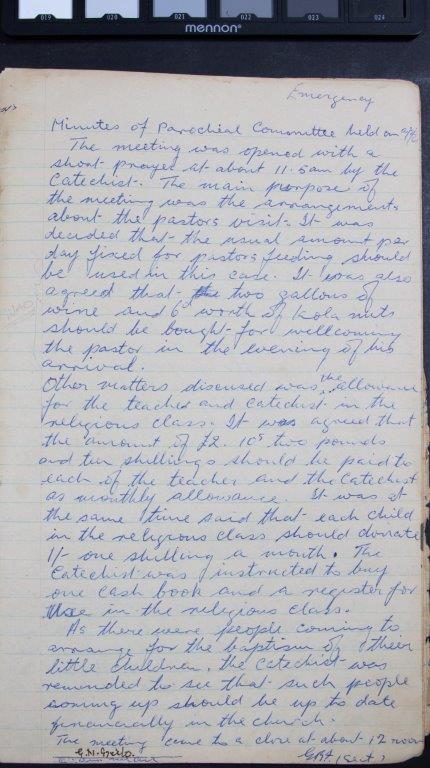 019 020 021 022 023 024
mennon
Emergency
Minutes of Parochial Committee held on
The meeting was opened with a
short prayer at about 11.5am by the
Catechist. The main purpose of
the meeting was the arrangements
about the pastors visit. It was
decided that the usual amount per
day fixed for pastors feeding should
be used in this case. It was also
agreed that two gallons of
wine and 6d worth of kola nuts
should be bought for wellcoming
the pastor in the evening of his
arrival.
Other matters discused was the allowance
for the teacher and catechist in the
religious class. It was agreed that
the amount of £2. 10s two pounds
and ten shillings should be paid to
each of the teacher and the Catechist
as monthly allowance. It was at
the same time said that each child
in the religious class should donate
1/- one shilling a month. The
Catechist was instructed to buy
one cash book and a register for
use in the religious class.
As there were people coming to
arrange for the baptism of their
little children, the Catechist was
reminded to see that such people
coming up should be up to date
financially in the church.
The meeting came to a close at about 12 noon